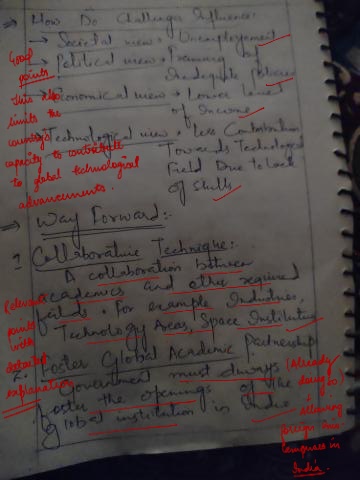 ⇒ How Do Challenges Influence:
→ Societal view → Unemployement
→ Political view → Framing of
Inadequate Policies
→ Economical view → Lower level
of Income
→ Technological view → less Contribution
Towards Technological
Field Due to lack
of Skills
Good
points.
This also
limits the
country's
capacity to contribute
to global technological
advancements.
⇒ Way Forward:-
1. Collaborative Technique:
A collaboration between
academics and other required
fields. For example Industries,
Technology Areas, Space Institution
Relevant
points
with
detailed
explanation
2. Foster Global Academic Partnership
Government must always
foster the openings of the
global institution in India
(Already
doing so)
allowing
foreign
campuses in
India.